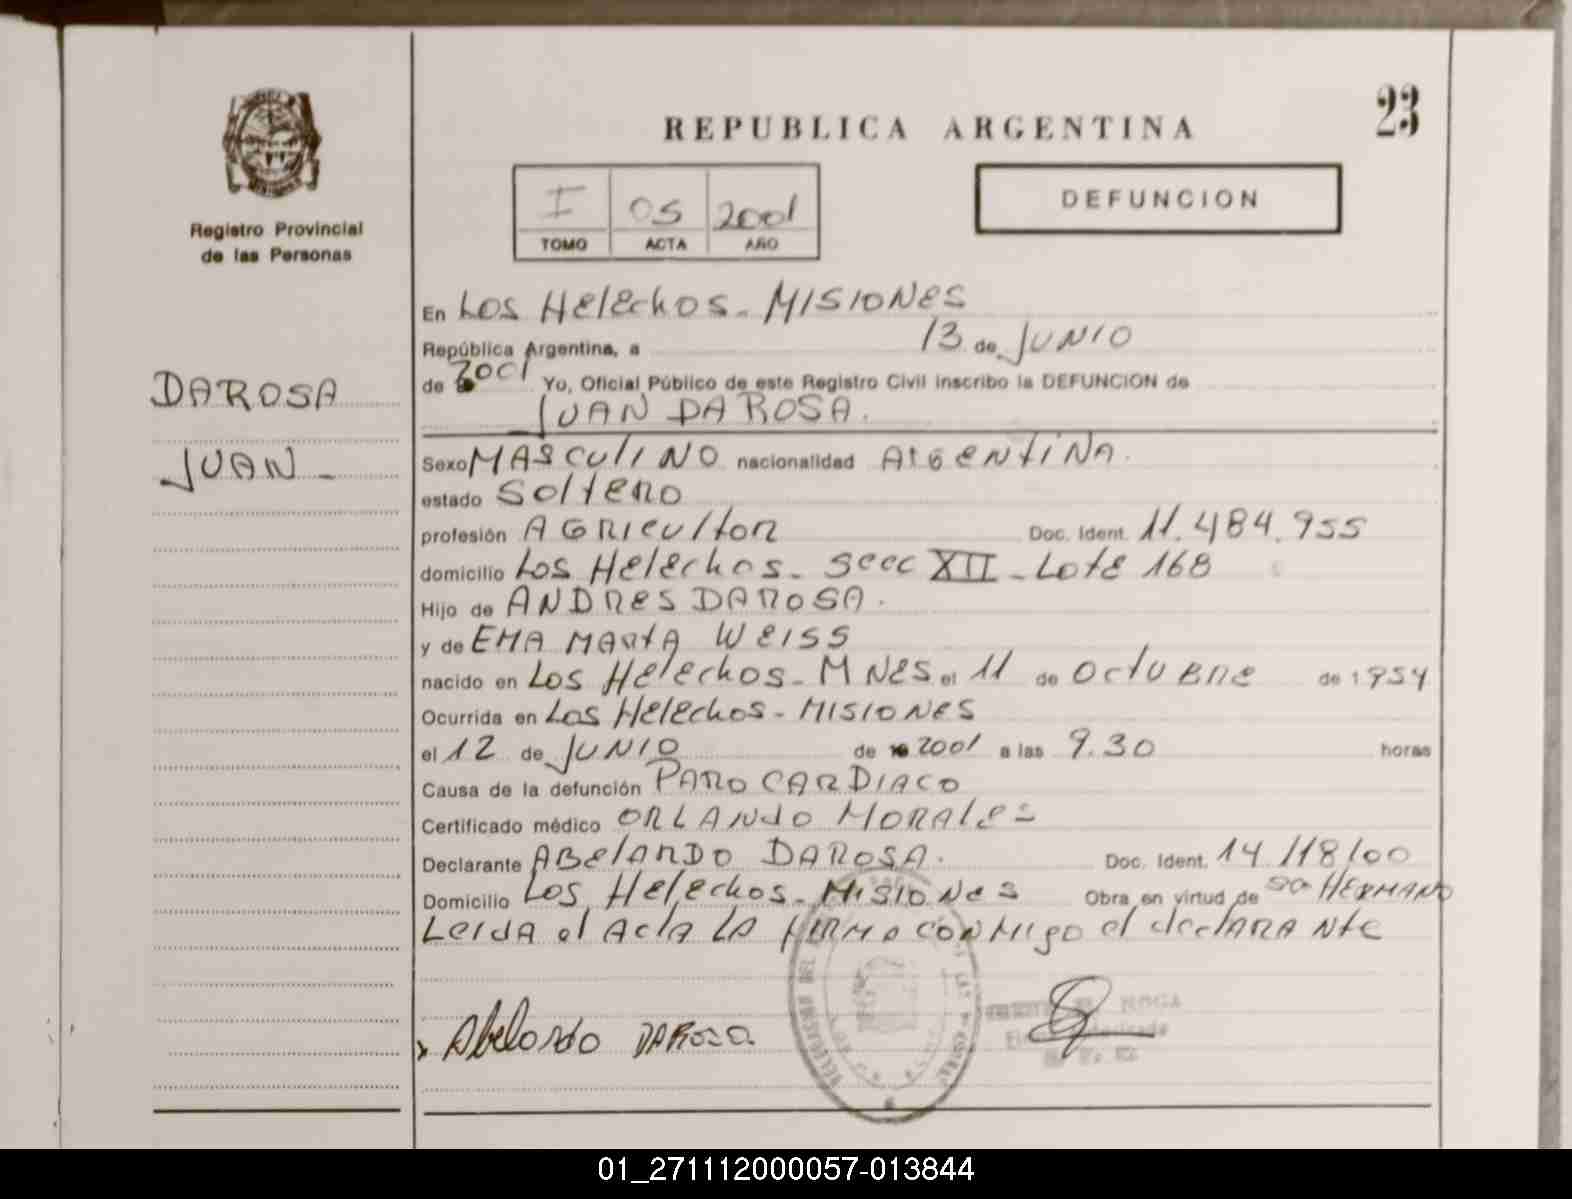 23
REPUBLICA ARGENTINA
DEFUNCION
I 05 2001
TOMO ACTA AÑO
Registro Provincial
de las Personas
DAROSA
JUAN -
En Los Helechos - MISIONES
República Argentina, a 13 de JUNIO
de 2001 Yo, Oficial Público de este Registro Civil inscribo la DEFUNCION de
JUAN DAROSA.
Sexo MASCULINO nacionalidad ARGENTINA.
estado Soltero
profesión AGRICULTOR Doc. Ident. 11.484.955
domicilio Los Helechos - Secc XII - Lote 168
Hijo de ANDRES DAROSA.
y de EMA MARTA WEISS
nacido en Los Helechos - MNES el 11 de OCTUBRE de 1954
Ocurrida en Los Helechos - MISIONES
el 12 de JUNIO de 2001 a las 9.30 horas
Causa de la defunción PARO CARDIACO
Certificado médico ORLANDO MORALES
Declarante ABELARDO DAROSA. Doc. Ident. 14.118.100
Domicilio Los Helechos - MISIONES Obra en virtud de SER HERMANO
Leida el Acta LA FIRMA CONMIGO el declARANte
x Abelardo DAROSA
01_271112000057-013844